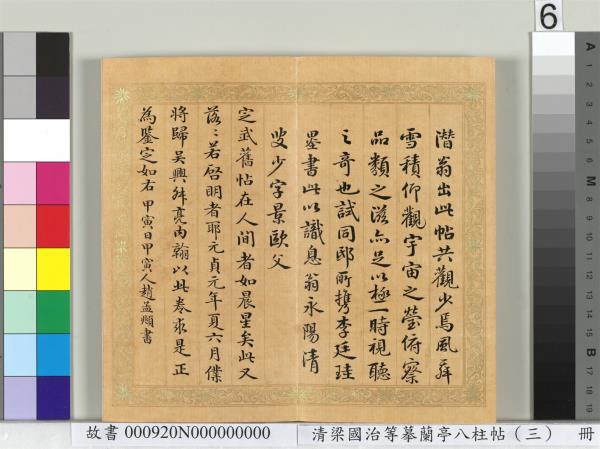 潛翁出此帖共觀少焉風舞
雪積仰觀宇宙之瑩俯察
品類之滋亦足以極一時視聽
之奇也試同邸所携李廷珪
墨書此以識息翁永陽清
叟少字景歐父
定武舊帖在人間者如晨星矣此又
落〻若啓明者耶元貞元年夏六月僕
將歸吳興舜亮內翰以此卷求是正
為鑒定如右 甲寅日甲寅人趙孟頫書
故書 000920N000000000
清梁國治等摹蘭亭八柱帖（三） 冊
6
A 1 2 3 4 5 6 M 8 9 10 11 12 13 14 15 B 17 18 19